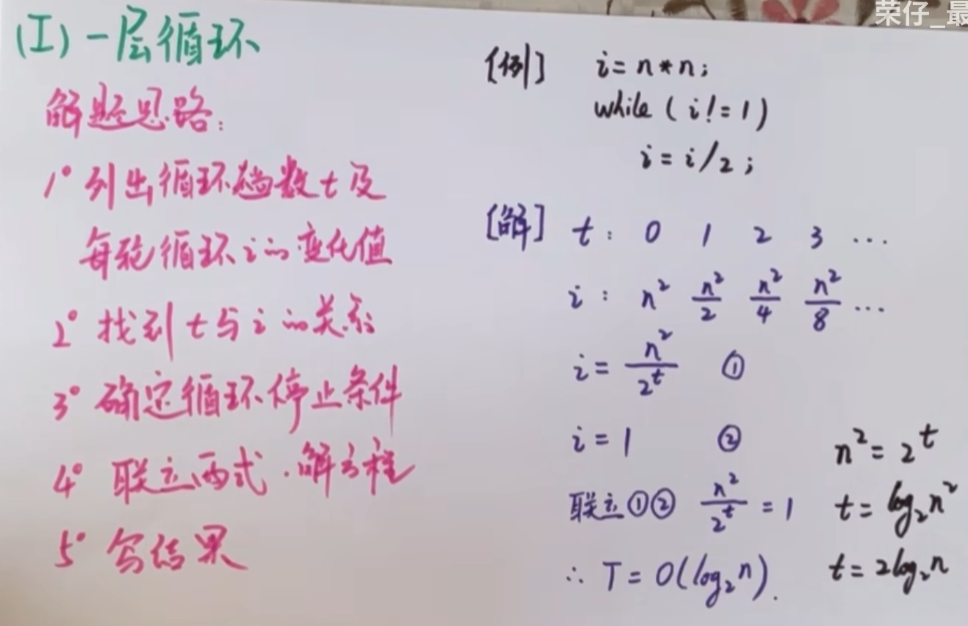 荣仔_最
(I) 一层循环
解题思路:
1° 列出循环趟数t及
每轮循环i的变化值
2° 找到t与i的关系
3° 确定循环停止条件
4° 联立两式,解方程
5° 写结果
[例] i= n*n;
while (i!=1)
i=i/2;
[解] t: 0 1 2 3 ...
i: n² n²/2 n²/4 n²/8 ...
i= n²/2^t ①
i=1 ②
联立①② n²/2^t =1
∴ T=O(log₂n).
n²=2^t
t=log₂n²
t=2log₂n